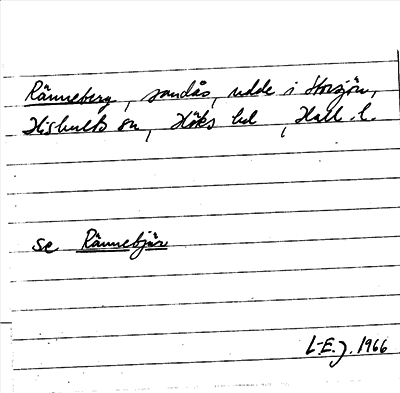 Ränneberg, sandås, udde i Storsjön,
Hishults sn, Höks hd, Hall. l.
se Rännebjär
L-E.J. 1966